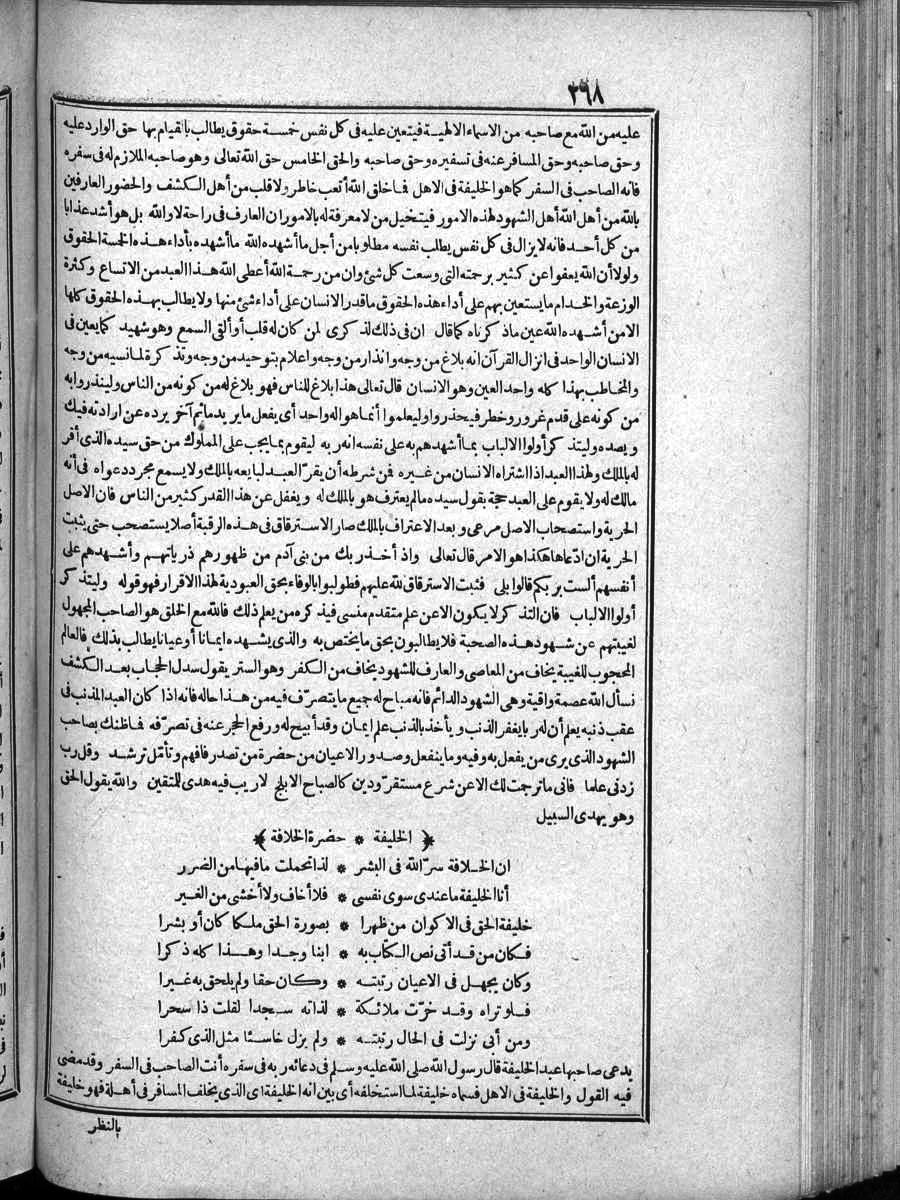 ٢٩٨
عليه من الله مع صاحبه من الاسماء الالهية فيتعين عليه فى كل نفس خمسة حقوق يطالب بالقيام بها حق الوارد عليه
وحق صاحبه وحق المسافر عنه فى تسفيره وحق صاحبه والحق الخامس حق الله تعالى وهو صاحبه الملازم له فى سفره
فانه الصاحب فى السفر كما هو الخليفة فى الاهل فما خلق الله أتعب خاطر ولا قلب من أهل الكشف والحضور العارفين
بالله من أهل الله أهل الشهود لهذه الامور فيتخيل من لا معرفة له بالامور ان العارف فى راحة لا والله بل هو أشد عذابا
من كل أحد فانه لا يزال فى كل نفس يطلب نفسه مطلوبا من أجل ما أشهده الله ما أشهده بأداء هذه الخمسة الحقوق
ولولا أن الله يعفو عن كثير برحمته التى وسعت كل شئ وان من رحمة الله أعطى الله هذا العبد من الاتساع وكثرة
الوزعة والخدام ما يستعين بهم على أداء هذه الحقوق ما قدر الانسان على أداء شئ منها ولا يطالب بهذه الحقوق كلها
الا من أشهده الله عين ماذكرناه كما قال ان فى ذلك لذكرى لمن كان له قلب أو ألقى السمع وهو شهيد كما يعين فى
الانسان الواحد فى انزال القرآن انه بلاغ من وجه وانذار من وجه واعلام بتوحيد من وجه وتذكرة لما نسيه من وجه
والمخاطب بهذا كله واحد العين وهو الانسان قال تعالى هذا بلاغ للناس فهو بلاغ له من كونه من الناس ولينذروا به
من كونه على قدم غرور وخطر فيحذر وليعلموا أنما هو اله واحد أى يفعل ما يريد ما ثم آخر يرده عن ارادته فيك
ويصده وليتذكر أولوا الالباب بما أشهدهم به على نفسه انه ربه ليقوم بما يجب على المملوك من حق سيده الذى أقر
له بالملك ولهذا العبد اذا اشتراه الانسان من غيره فمن شرطه أن يقر العبد لبايعه بالملك ولا يسمع مجرد دعواه فى أنه
مالك له ولا يقوم على العبد حجة بقول سيده مالم يعترف هو بالملك له ويغفل عن هذا القدر كثير من الناس فان الاصل
الحرية واستصحاب الاصل مرعى وبعد الاعتراف بالملك صار الاسترقاق فى هذه الرقبة أصلا يستصحب حتى يثبت
الحرية ان ادعاها هكذا هو الامر قال تعالى واذ أخذ ربك من بنى آدم من ظهورهم ذرياتهم وأشهدهم على
أنفسهم ألست بربكم قالوا بلى فثبت الاسترقاق لله عليهم فطولبوا بالوفاء بحق العبودية لهذا الاقرار فهو قوله وليتذكر
أولوا الالباب فان التذكر لا يكون الا عن علم متقدم منسى فيذكره من يعلم ذلك فالله مع الخلق هو الصاحب المجهول
لغيبتهم عن شهود هذه الصحبة فلا يطالبون بحق ما يختص به والذى يشهده ايمانا أو عيانا يطالب بذلك فالعالم
المحجوب للغيبة يخاف من المعاصى والعارف للشهود يخاف من الكفر وهو الستر يقول سدل الحجاب بعد الكشف
نسأل الله عصمة واقية وهى الشهود الدائم فانه مباح له جميع ما يتصرف فيه من هذا حاله فانه اذا كان العبد المذنب فى
عقب ذنبه يعلم أن له ربا يغفر الذنب ويأخذ بالذنب علم ايمان وقد أبيح له ورفع الحجر عنه فى تصرفه فما ظنك بصاحب
الشهود الذى يرى من يفعل به وفيه وما ينفعل وصدور الاعيان من حضرة من تصدر فافهم وتأمل ترشد وقل رب
زدنى علما فانى ما ترجمت لك الا عن شرع مستقر ودين كالصباح الابلج لا ريب فيه هدى للمتقين والله يقول الحق
وهو يهدى السبيل
﴿ الخليفة * حضرة الخلافة ﴾
ان الخلافة سر الله فى البشر * لذا تحملت ما فيها من الضرر
أنا الخليفة ما عندى سوى نفسى * فلا أخاف ولا أخشى من الغير
خليفة الحق فى الاكوان من ظهرا * بصورة الحق ملكا كان أو بشرا
فكان من قد أتى نص الكتاب به * ابنا وجدا وهذا كله ذكرا
وكان يجهل فى الاعيان رتبته * وكان حقا ولم يلحق به غيرا
فلو تراه وقد خرت ملائكة * لذاته سجدا لقلت ذا سحرا
ومن أبى نزلت فى الحال رتبته * ولم يزل خاسئا مثل الذى كفرا
يدعى صاحبها عبد الخليفة قال رسول الله صلى الله عليه وسلم فى دعائه ربه فى سفره أنت الصاحب فى السفر وقد مضى
فيه القول والخليفة فى الاهل فسماه خليفة لما استخلفه أى بين انه الخليفة اى الذى يخلف المسافر فى أهله فهو خليفة
بالنظر